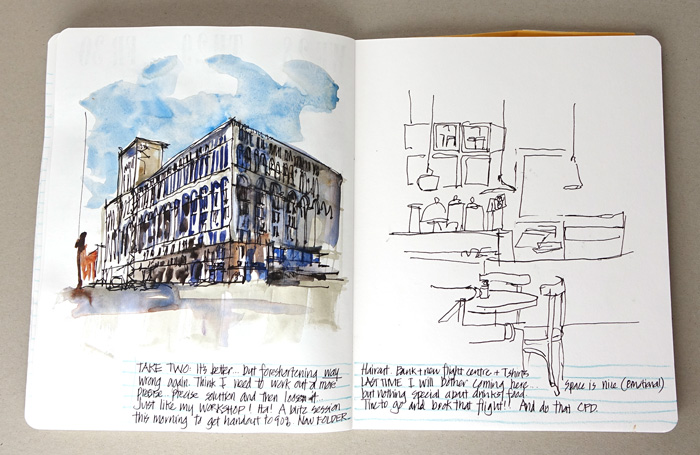 TAKE TWO: It's better... but foreshortening way
wrong again. Think I need to work out a more
precise solution and then loosen it...
Just like my WORKSHOP! Ha! A blitz session
this morning to get handout to 90%. New FOLDER
Haircut Bank + new flight centre + Tshirts
LAST TIME I will bother coming here...
space is nice (emotional)
but nothing special apart drinks/food.
Time to go and book that flight!! And do that CPD.